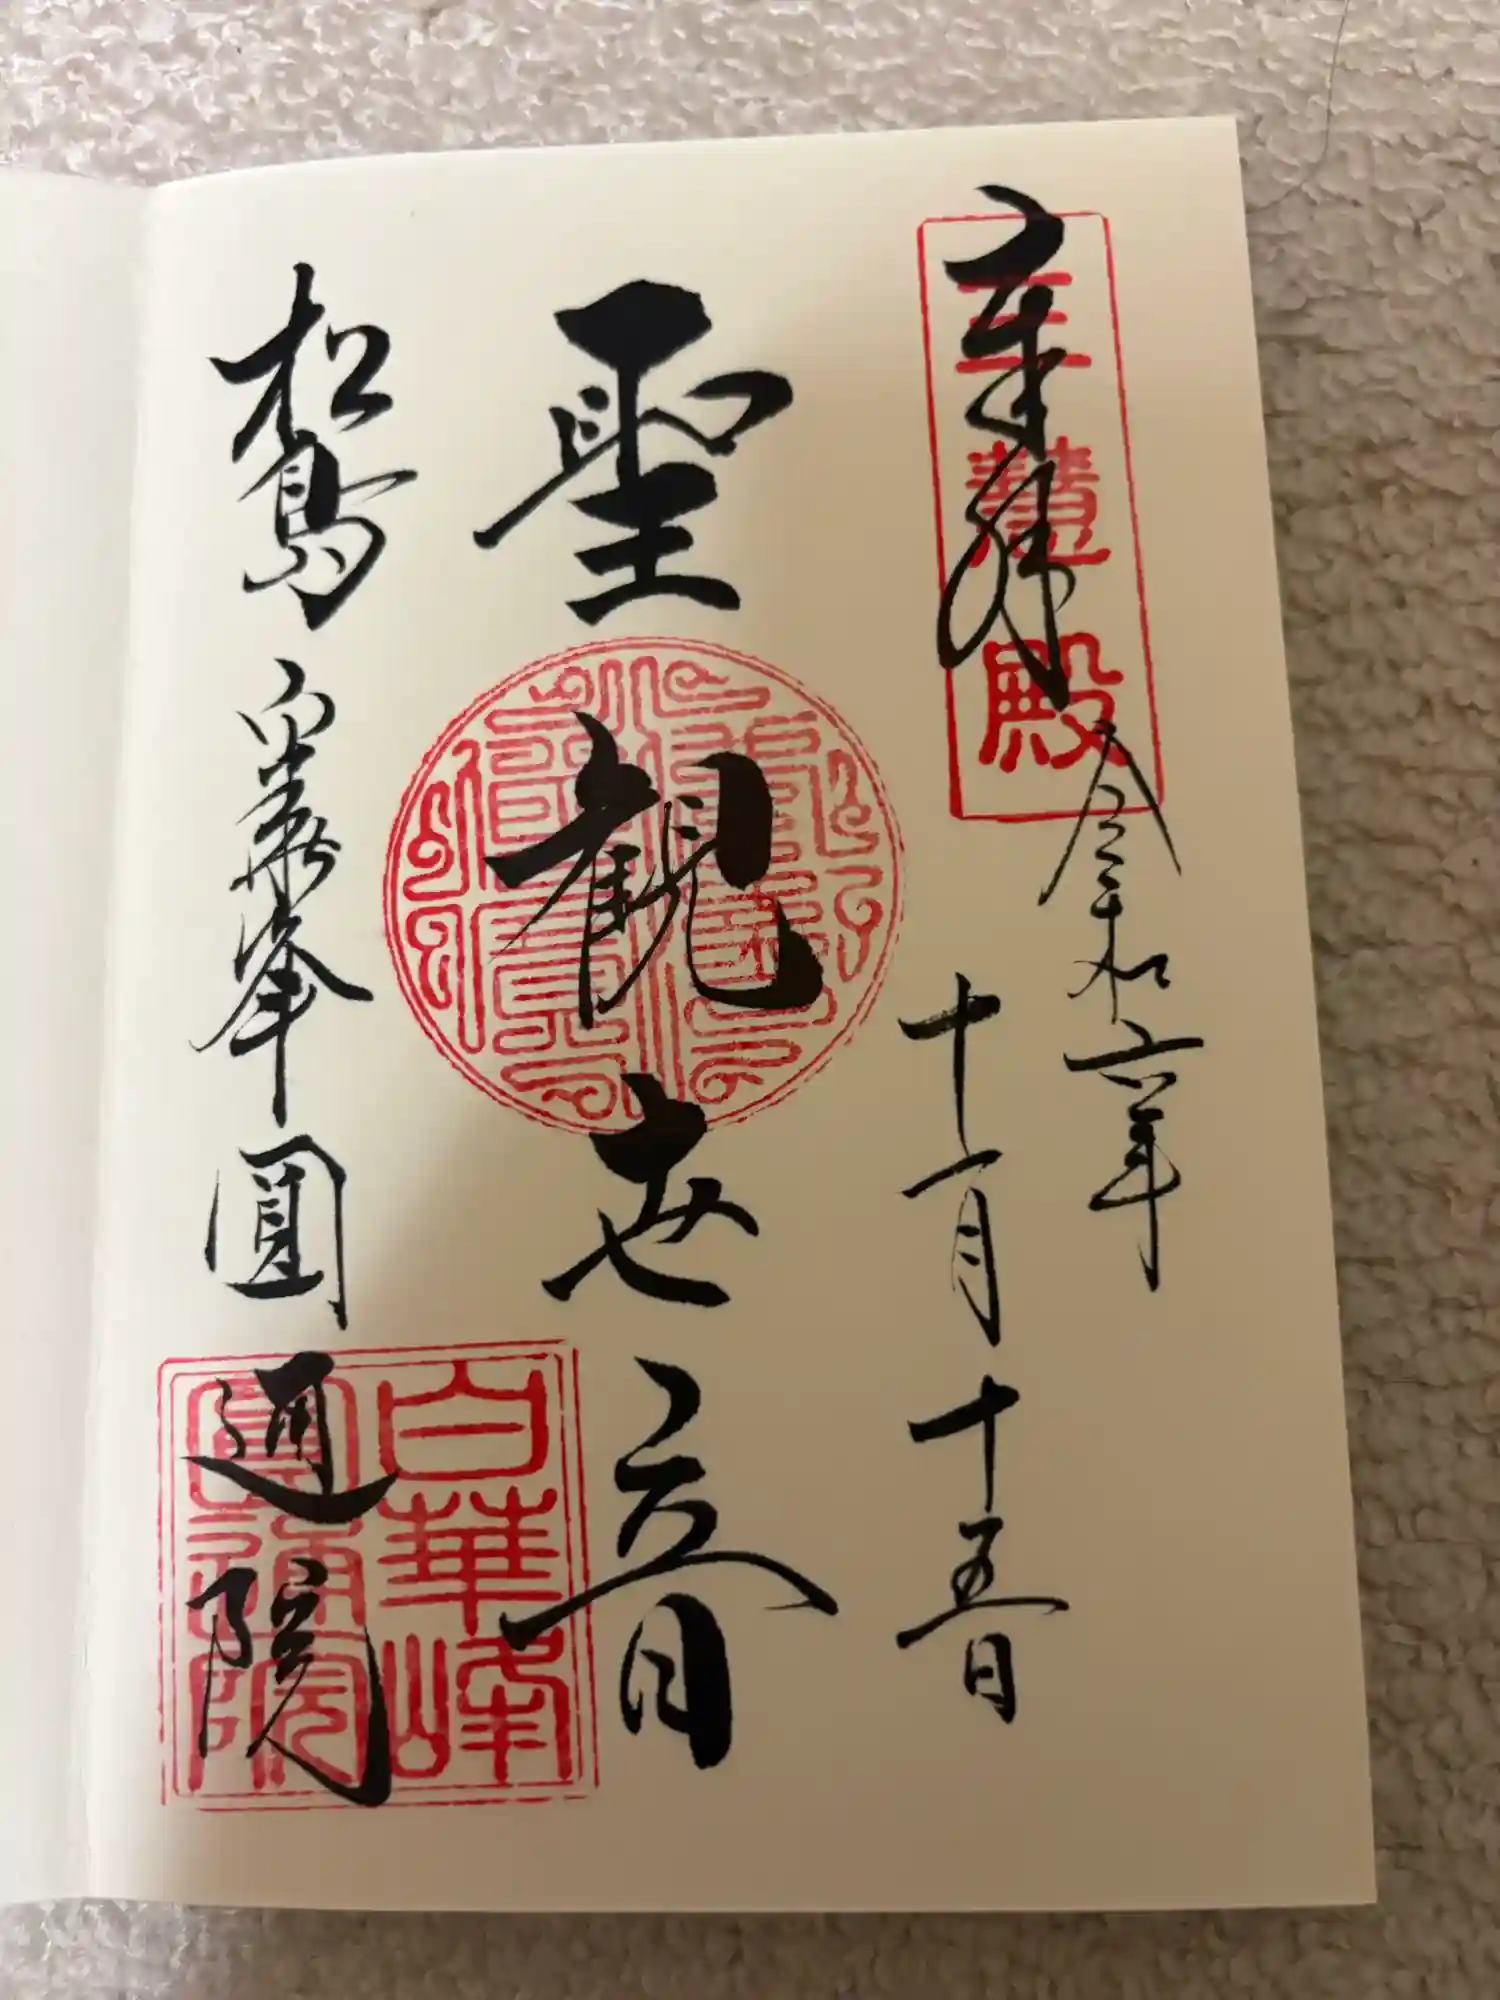 奉拝
三慧殿
令和六年
十一月十五日
聖観世音
松島 白華峰 圓通院
白華峰
圓通院